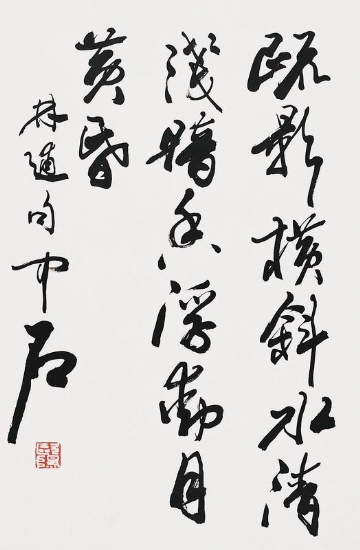 疏影横斜水清
浅暗香浮动月
黄昏
林逋句中石